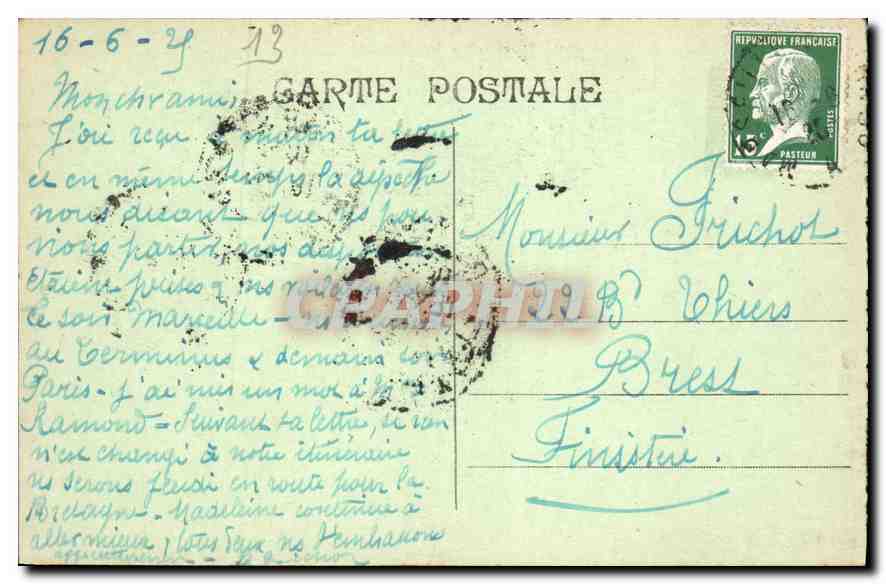 16-6-25
13
CARTE POSTALE
REPVBLIQUE FRANÇAISE
15c
POSTES
PASTEUR
Mon cher ami,
J'ai reçu matin ta lettre
et en même temps la dépêche
nous disant que
nous partir, nos
étaient prises & ns
ce soir Marseille -
au Terminus & demain soir
Paris - j'ai mis un mot à
Ramond - Suivant ta lettre, si rien
n'est changé à notre itinéraire
ns serons jeudi en route pour la
Bretagne - Madeleine continue à
aller mieux, tous deux ns t'embrassons
affectueusement -
Monsieur Frichot
22 Bd Thiers
Brest
Finistère.
CPAPHIL